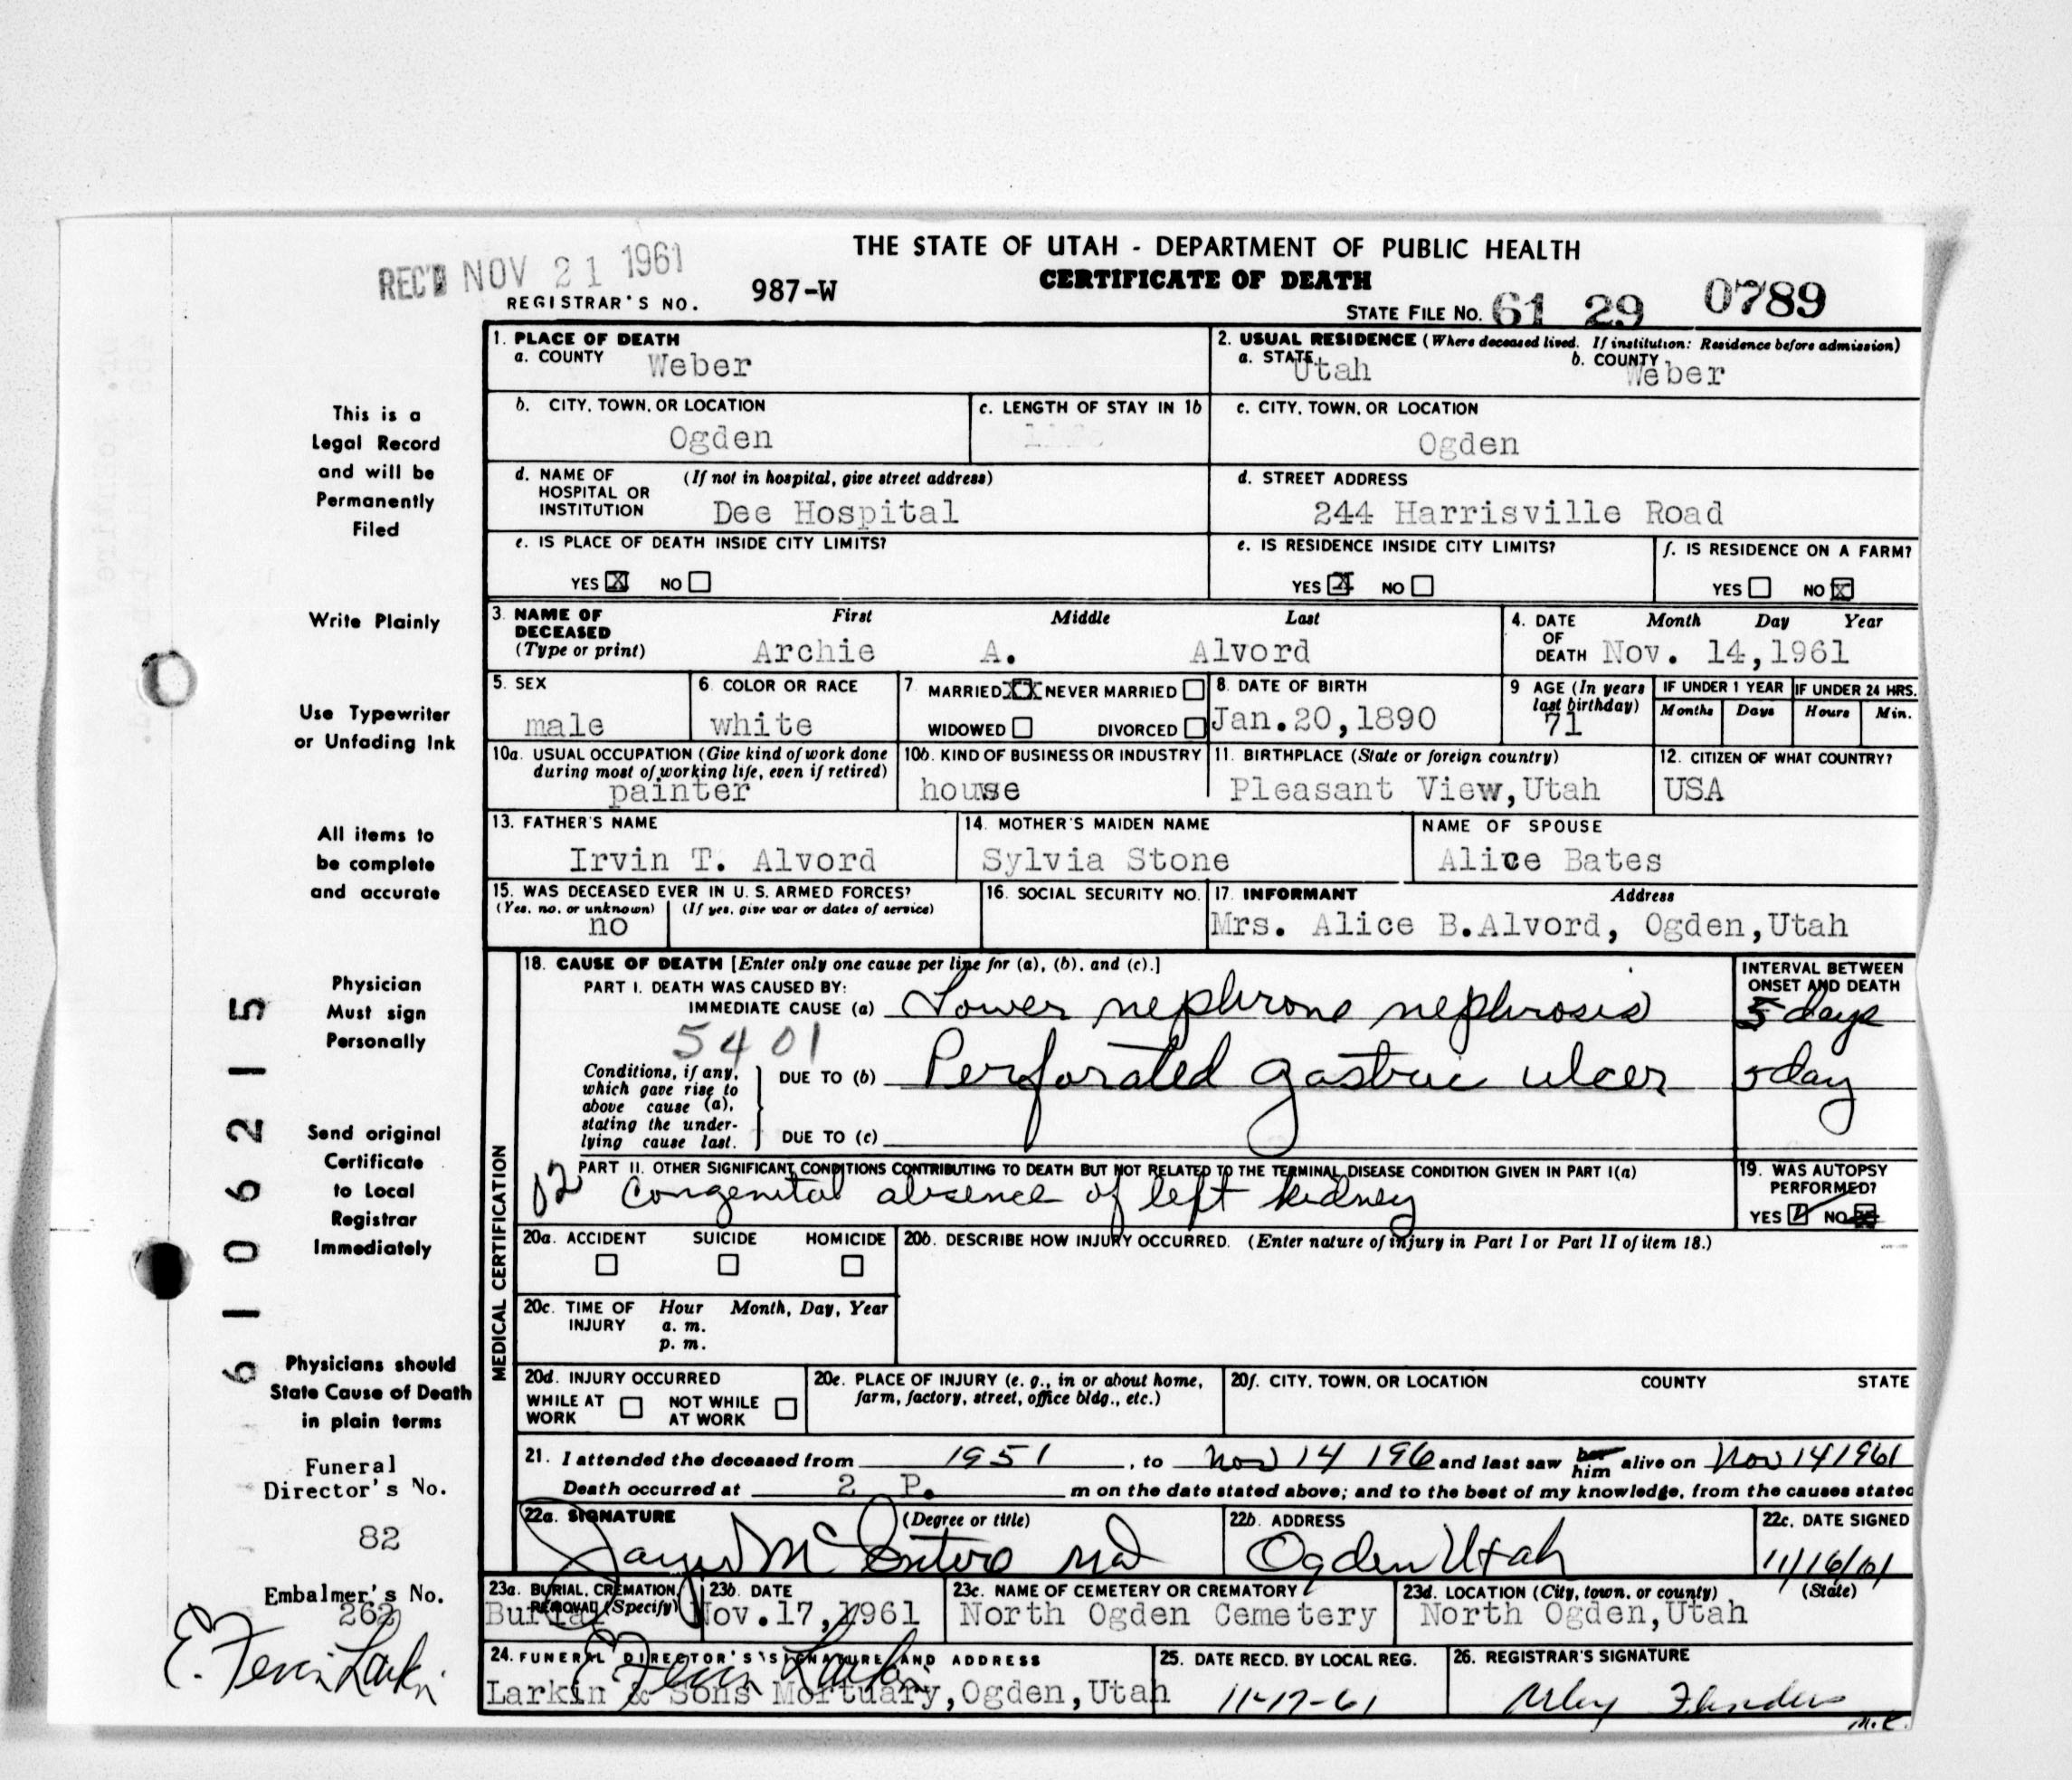 REC'D NOV 21 1961
THE STATE OF UTAH - DEPARTMENT OF PUBLIC HEALTH
CERTIFICATE OF DEATH
REGISTRAR'S NO. 987-W
STATE FILE NO. 61 29 0789
1. PLACE OF DEATH
a. COUNTY Weber
2. USUAL RESIDENCE (Where deceased lived. If institution: Residence before admission)
a. STATE Utah b. COUNTY Weber
b. CITY, TOWN, OR LOCATION
Ogden
c. LENGTH OF STAY IN 1b
c. CITY, TOWN, OR LOCATION
Ogden
d. NAME OF HOSPITAL OR INSTITUTION (If not in hospital, give street address)
Dee Hospital
d. STREET ADDRESS
244 Harrisville Road
e. IS PLACE OF DEATH INSIDE CITY LIMITS?
YES X NO
e. IS RESIDENCE INSIDE CITY LIMITS?
YES X NO
f. IS RESIDENCE ON A FARM?
YES NO X
3. NAME OF DECEASED (Type or print)
First Middle Last
Archie A. Alvord
4. DATE OF DEATH Month Day Year
Nov. 14,1961
5. SEX
male
6. COLOR OR RACE
white
7. MARRIED XX NEVER MARRIED
WIDOWED DIVORCED
8. DATE OF BIRTH
Jan.20,1890
9 AGE (In years last birthday)
71
IF UNDER 1 YEAR
Months Days
IF UNDER 24 HRS.
Hours Min.
10a. USUAL OCCUPATION (Give kind of work done during most of working life, even if retired)
painter
10b. KIND OF BUSINESS OR INDUSTRY
house
11. BIRTHPLACE (State or foreign country)
Pleasant View,Utah
12. CITIZEN OF WHAT COUNTRY?
USA
13. FATHER'S NAME
Irvin T. Alvord
14. MOTHER'S MAIDEN NAME
Sylvia Stone
NAME OF SPOUSE
Alice Bates
15. WAS DECEASED EVER IN U. S. ARMED FORCES?
(Yes, no, or unknown) (If yes, give war or dates of service)
no
16. SOCIAL SECURITY NO.
17. INFORMANT Address
Mrs. Alice B.Alvord, Ogden,Utah
MEDICAL CERTIFICATION
18. CAUSE OF DEATH [Enter only one cause per line for (a), (b), and (c).]
PART I. DEATH WAS CAUSED BY:
IMMEDIATE CAUSE (a) Lower nephrone nephrosis
INTERVAL BETWEEN ONSET AND DEATH
5 days
5401
Conditions, if any, which gave rise to above cause (a), stating the underlying cause last.
DUE TO (b) Perforated gastric ulcer
5 day
DUE TO (c)
PART II. OTHER SIGNIFICANT CONDITIONS CONTRIBUTING TO DEATH BUT NOT RELATED TO THE TERMINAL DISEASE CONDITION GIVEN IN PART I(a)
Congenital absence of left kidney
19. WAS AUTOPSY PERFORMED?
YES NO
20a. ACCIDENT SUICIDE HOMICIDE
20b. DESCRIBE HOW INJURY OCCURRED. (Enter nature of injury in Part I or Part II of item 18.)
20c. TIME OF INJURY Hour Month, Day, Year
a. m.
p. m.
20d. INJURY OCCURRED
WHILE AT WORK NOT WHILE AT WORK
20e. PLACE OF INJURY (e. g., in or about home, farm, factory, street, office bldg., etc.)
20f. CITY, TOWN, OR LOCATION COUNTY STATE
21. I attended the deceased from 1951, to Nov 14 196 and last saw her him alive on Nov 14 1961
Death occurred at 2 P. m on the date stated above; and to the best of my knowledge, from the causes stated
22a. SIGNATURE (Degree or title)
22b. ADDRESS
Ogden Utah
22c. DATE SIGNED
11/16/61
23a. BURIAL, CREMATION, REMOVAL (Specify)
Burial
23b. DATE
Nov.17,1961
23c. NAME OF CEMETERY OR CREMATORY
North Ogden Cemetery
23d. LOCATION (City, town, or county) (State)
North Ogden,Utah
24. FUNERAL DIRECTOR'S SIGNATURE AND ADDRESS
Larkin & Sons Mortuary,Ogden,Utah
25. DATE RECD. BY LOCAL REG.
11-17-61
26. REGISTRAR'S SIGNATURE
This is a
Legal Record
and will be
Permanently
Filed
Write Plainly
Use Typewriter
or Unfading Ink
All items to
be complete
and accurate
Physician
Must sign
Personally
Send original
Certificate
to Local
Registrar
Immediately
Physicians should
State Cause of Death
in plain terms
Funeral
Director's No.
82
Embalmer's No.
262
61 06215